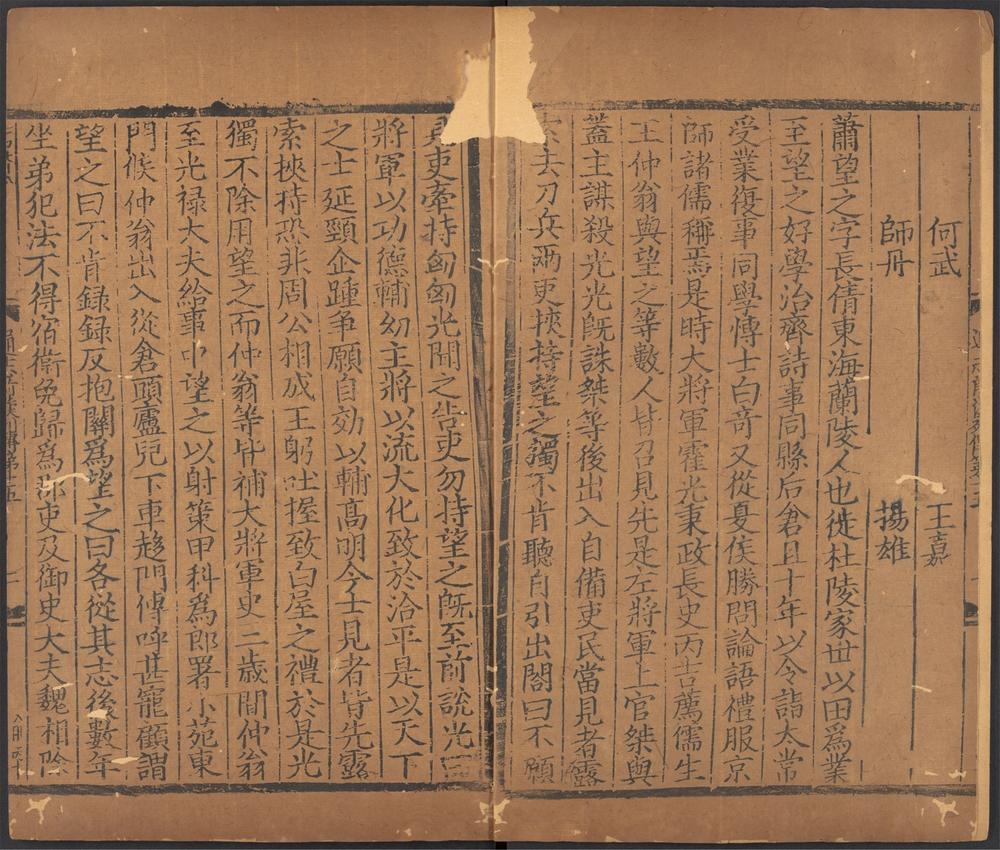 何武　王嘉
師丹　揚雄
蕭望之字長倩東海蘭陵人也徙杜陵家世以田爲業
至望之好學治齊詩事同縣后倉且十年以令詣太常
受業復事同學博士白竒又從夏侯勝問論語禮服京
師諸儒稱焉是時大將軍霍光秉政長史丙吉薦儒生
王仲翁與望之等數人皆召見先是左將軍上官桀與
蓋主謀殺光光旣誅桀等後出入自備吏民當見者露
索去刀兵兩吏挾持望之獨不肯聽自引出閤曰不願
見吏牽持匈匈光聞之告吏勿持望之旣至前說光曰
將軍以功德輔幼主將以流大化致於洽平是以天下
之士延頸企踵争願自効以輔高明今士見者皆先露
索挾持恐非周公相成王躬吐握致白屋之禮於是光
獨不除用望之而仲翁等皆補大將軍史三歲間仲翁
至光禄大夫給事中望之以射策甲科爲郎署小苑東
門候仲翁出入從倉頭廬兒下車趍門傳呼甚寵顧謂
望之曰不肯録録反抱關爲望之曰各從其志後數年
坐弟犯法不得宿衞免歸爲郡吏及御史大夫魏相除